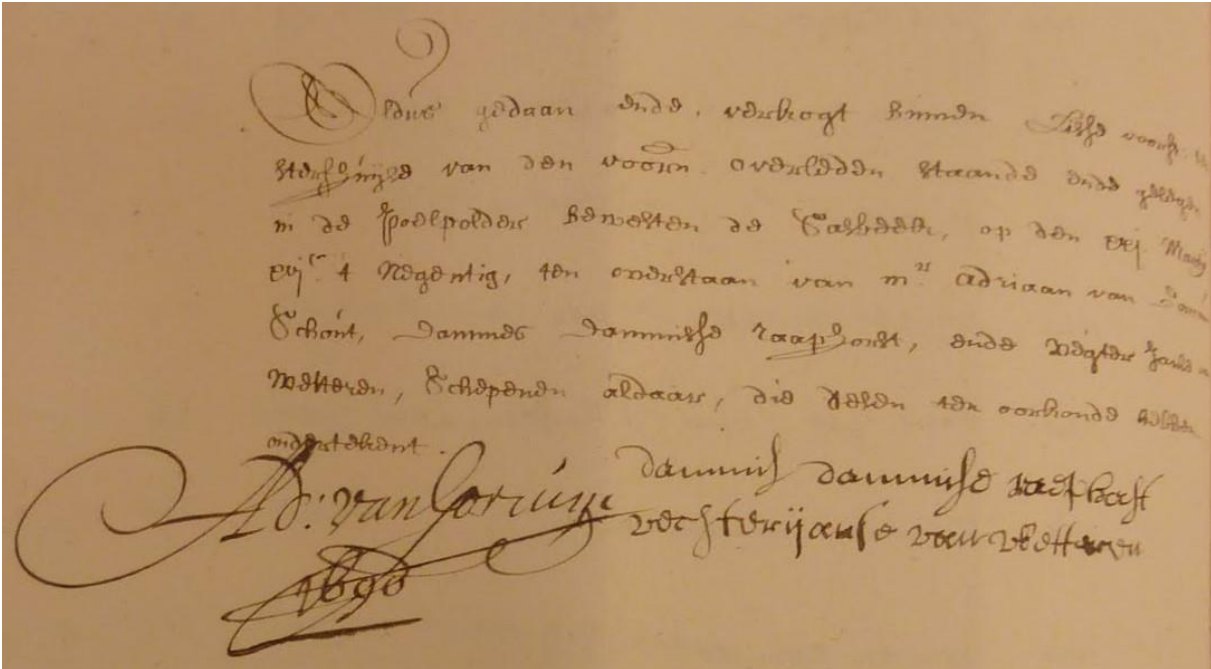 Aldus gedaan ende verkogt binnen Lisse voorsz.
sterfhuijze van den voorn. overledden staande ende gelegen
in de Poelpolder bewesten de Catsbeeck, op den xxj. Martij
xvjc. t Negentig, ten overstaan van mr. Adriaan van
Schout, Dammes Dammisse raaphorst, ende Vegter Janse
Wetteren, Schepenen aldaar, die desen ten oorkonde hebben
ondertekent.
Ad: van Gorium dammis dammisse raephorst
vechter ijanse van wetteren
1690